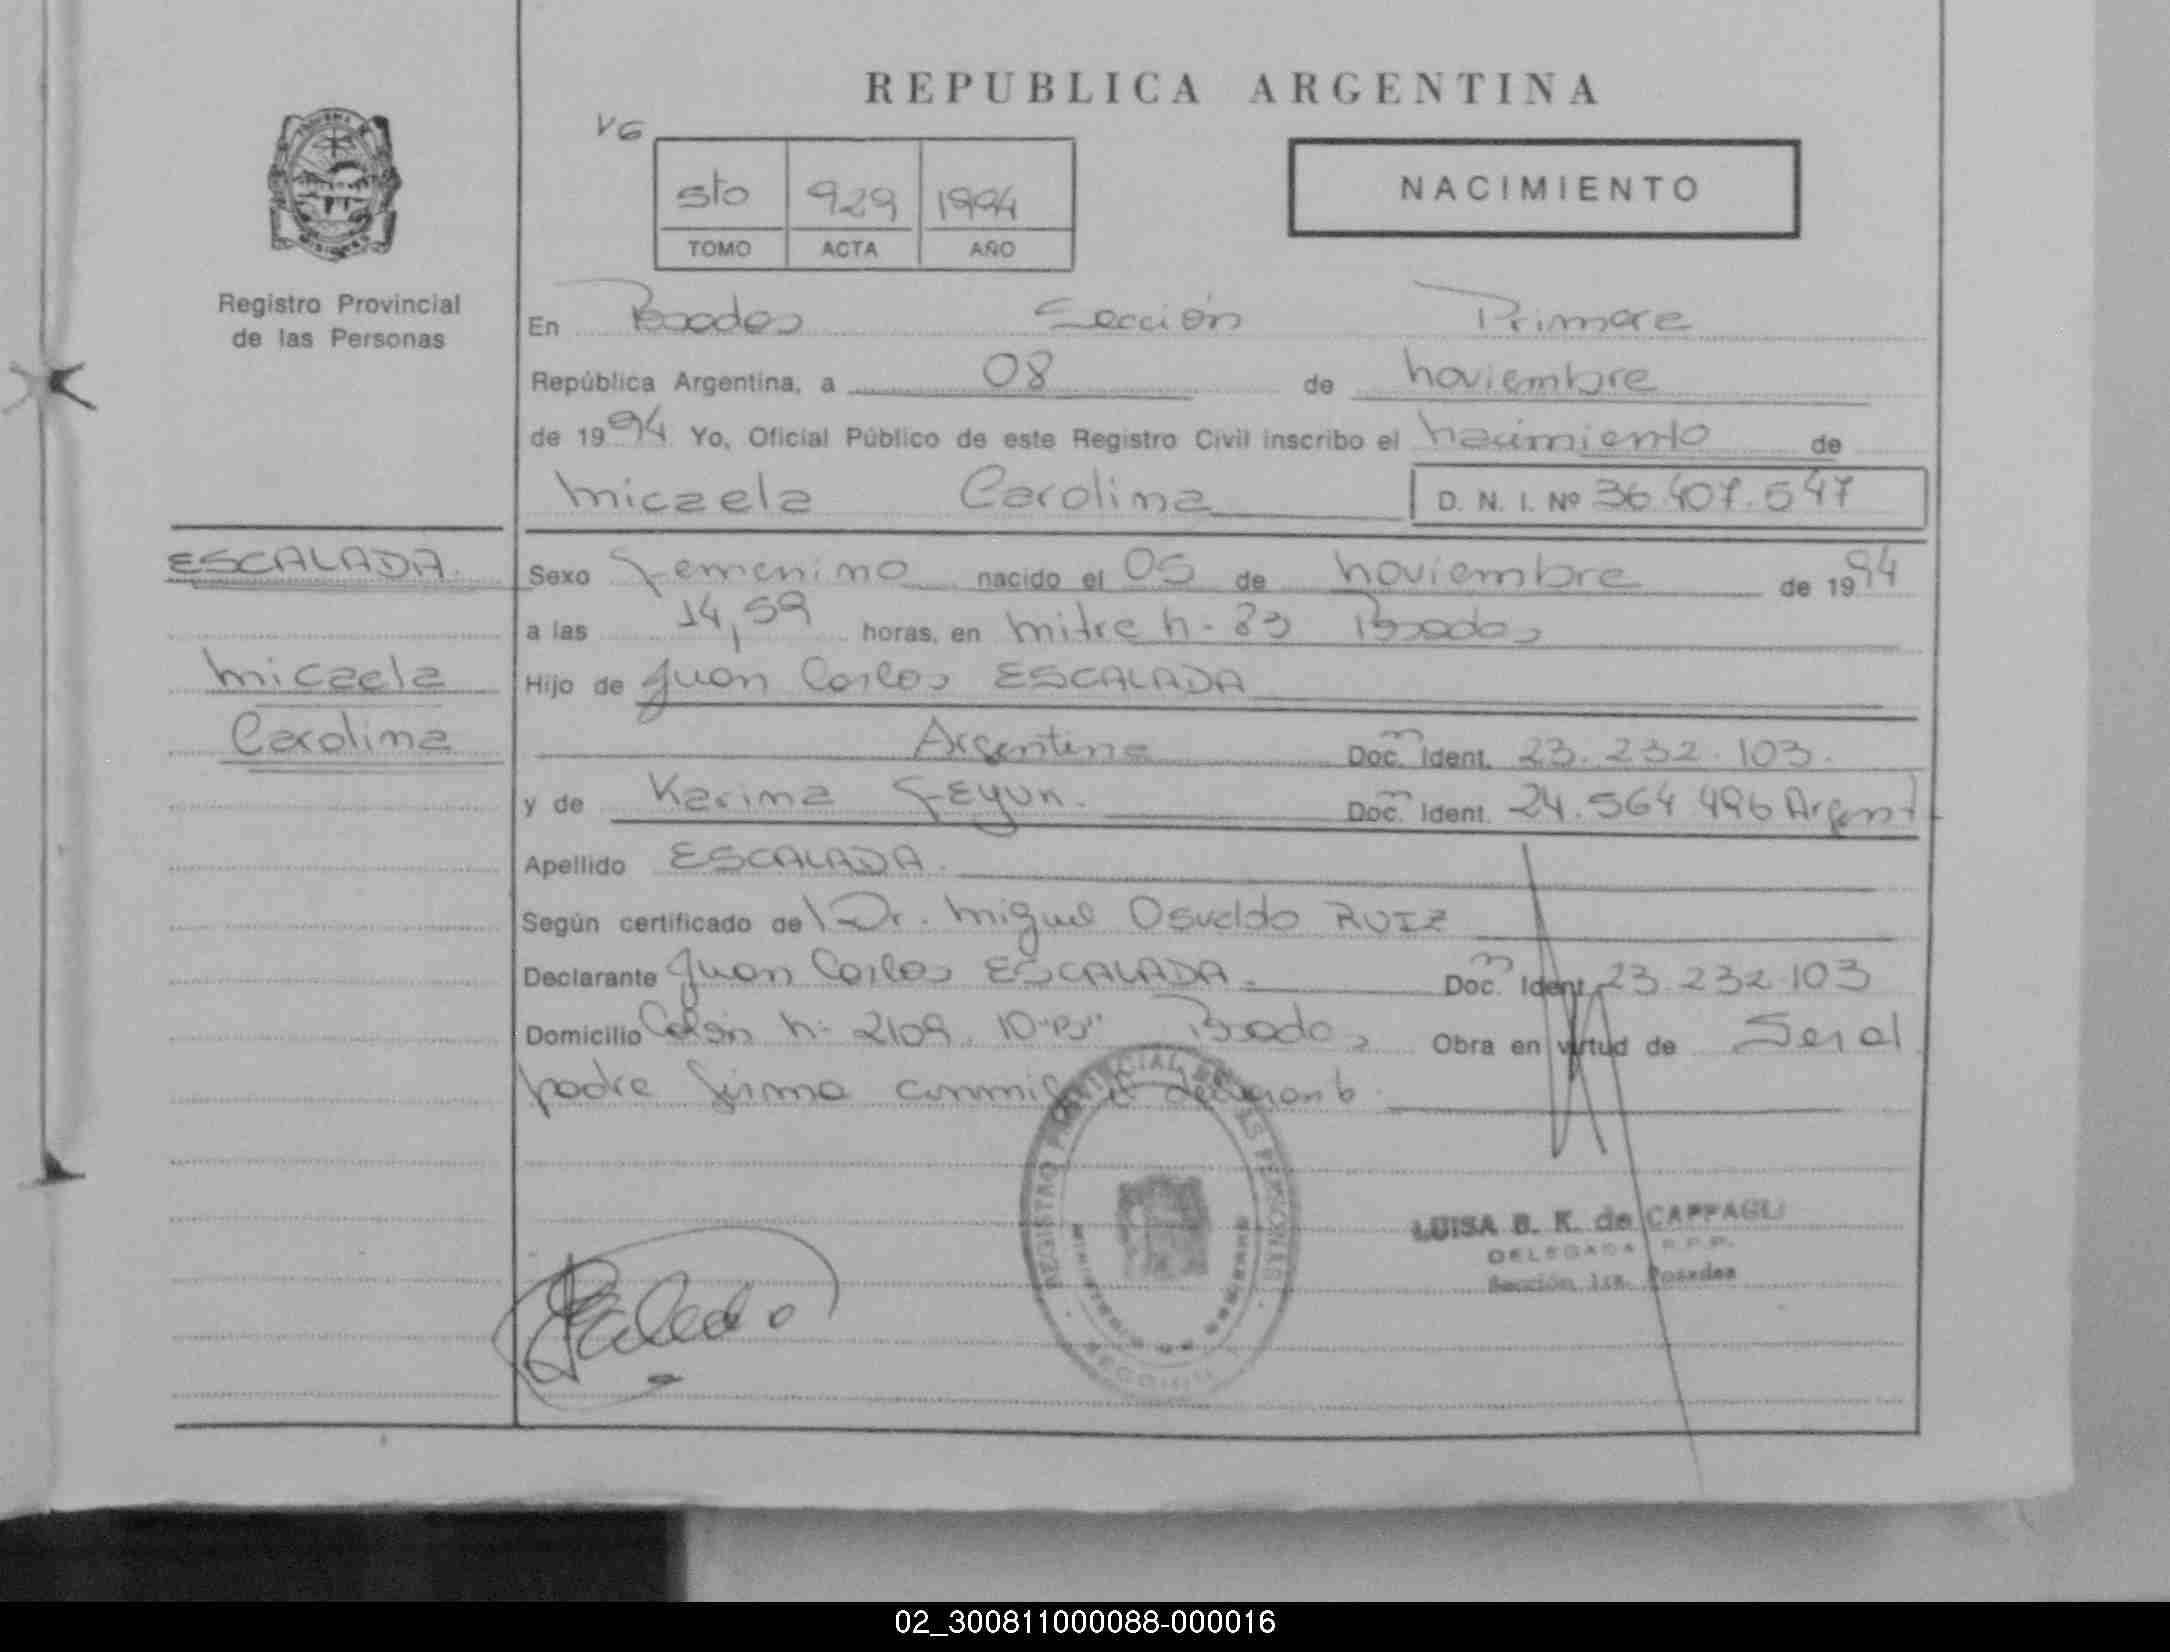 REPUBLICA ARGENTINA
VG
5to 929 1994
TOMO ACTA AÑO
NACIMIENTO
Registro Provincial
de las Personas
En Posadas Sección Primera
República Argentina, a 08 de noviembre
de 1994 Yo, Oficial Público de este Registro Civil inscribo el nacimiento de
Micaela Carolina D. N. I. Nº 36.407.547
ESCALADA
Micaela
Carolina
Sexo femenino nacido el 05 de noviembre de 1994
a las 14,59 horas, en Mitre n- 83 Posadas
Hijo de Juan Carlos ESCALADA
Argentina Doc. Ident. 23.232.103.
y de Karina Doc. Ident. 24.564 496 Argent
Apellido ESCALADA.
Según certificado de Dr. Miguel Osvaldo RUIZ
Declarante Juan Carlos ESCALADA. Doc. Ident. 23.232.103
Domicilio Colón n- 2109. 10 "B" Posadas Obra en virtud de Ser el
padre firma conmigo el declarante
REGISTRO PROVINCIAL DE LAS PERSONAS
LUISA B. K. de
DELEGADA R.P.P.
Sección 1ra. Posadas
02_300811000088-000016